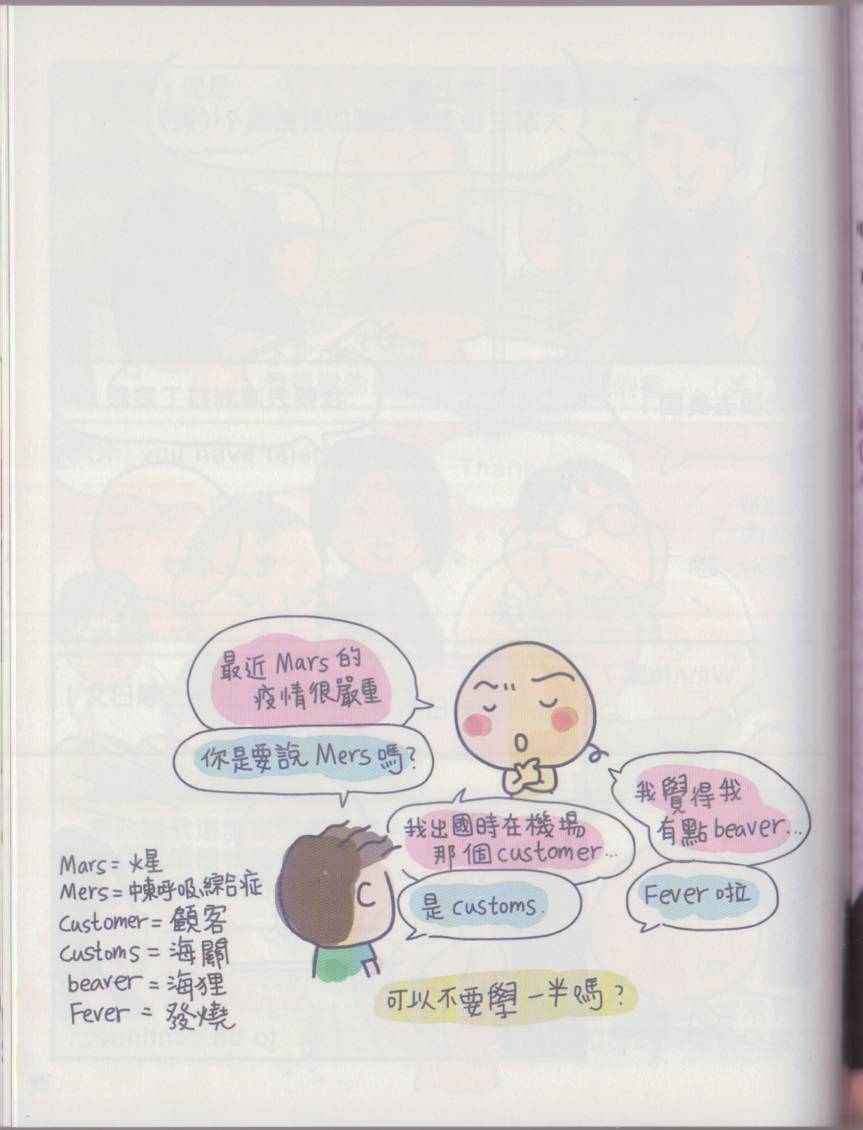 最近 Mars 的
疫情很嚴重
你是要說 Mers 嗎?
我出國時在機場
那個 customer...
是 customs.
我覺得我
有點 beaver...
Fever 啦
可以不要學一半嗎?
Mars = 火星
Mers = 中東呼吸綜合症
Customer = 顧客
Customs = 海關
beaver = 海狸
Fever = 發燒